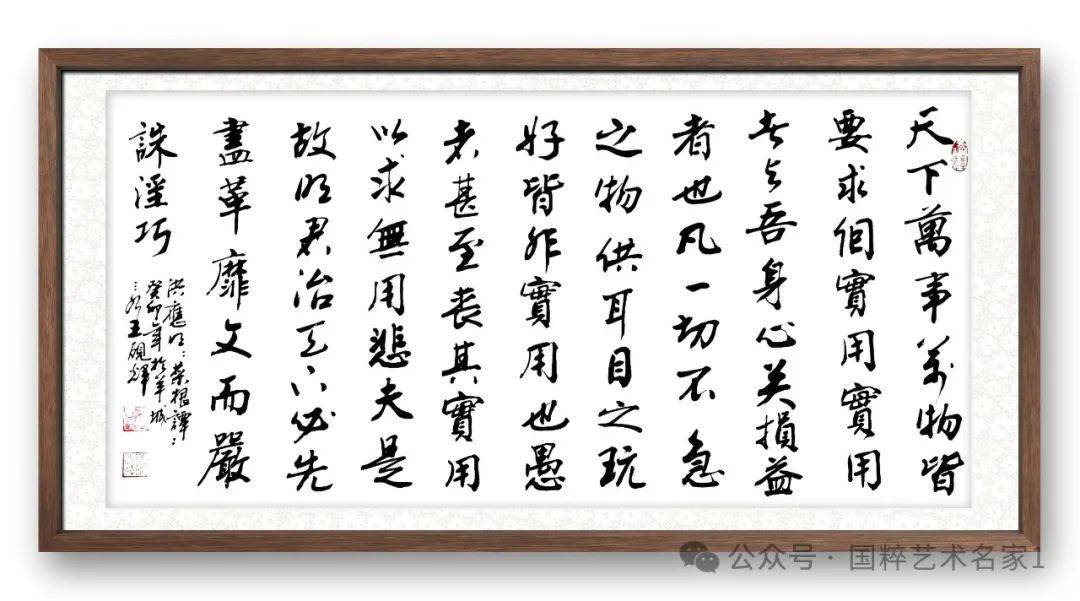 天下萬事萬物皆
要求個實用實用
者与吾身心关損益
者也凡一切不急
之物供耳目之玩
好皆非實用也愚
者甚至喪其實用
以求無用悲夫是
故明君治天下必先
盡革靡文而嚴
誅淫巧
洪應明菜根譚
癸卯年於羊城
三水王硯輝
公众号 · 国粹艺术名家1